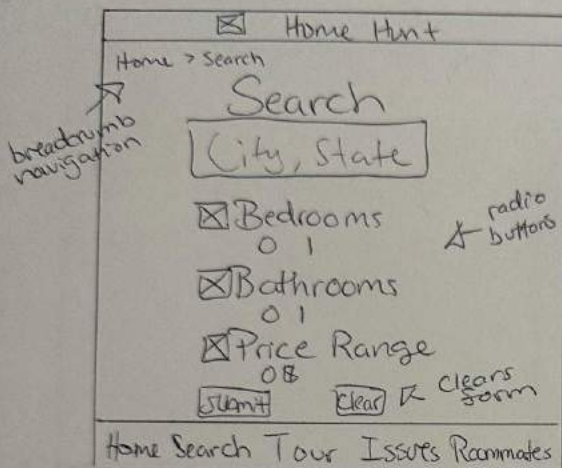 Home Hunt
Home > Search
breadcrumb
navigation
Search
City, State
Bedrooms
O 1
radio
buttons
Bathrooms
O 1
Price Range
O $
Submit
Clear
Clears
form
Home Search Tour Issues Roommates